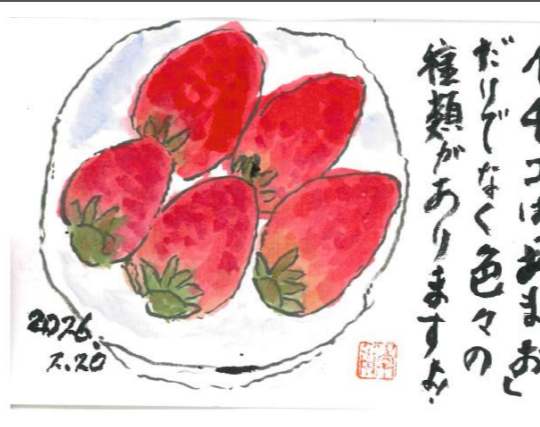 イチゴは「あまお」
だけでなく色々の
種類がありますよ!
2026.
2.20